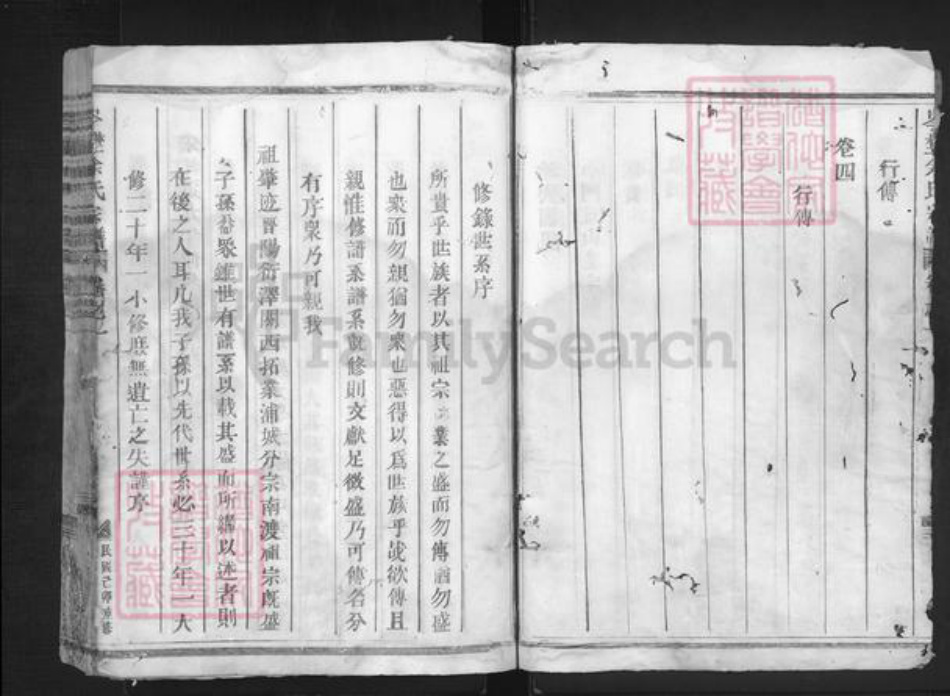 行傳
卷四
行傳
修錄世系序
所貴乎世族者以其祖宗之業之盛而勿傳酒勿盛
也衆而勿親猶勿衆也惡得以爲世族乎哉欲傳且
親惟修譜系譜系旣修則文獻足徵盛乃可傳名分
有序衆乃可親我
祖肇迹晉陽衍澤關西拓業浦城分宗南渡祖宗旣盛
子孫益衆維世有譜系以載其盛而所繼以述者則
在後之人耳凡我子孫以先代世系必三十年一大
修二十年一小修庶無遺亡之失謹序
民國己卯
FamilySearch